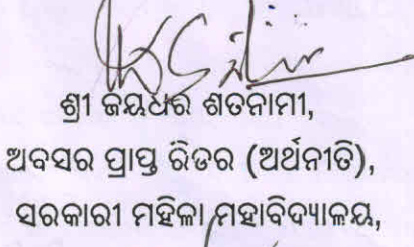 ଶ୍ରୀ ଜୟଧର ଶତନାମୀ,
ଅବସର ପ୍ରାପ୍ତ ରିଡର (ଅର୍ଥନୀତି),
ସରକାରୀ ମହିଳା ମହାବିଦ୍ୟାଳୟ,